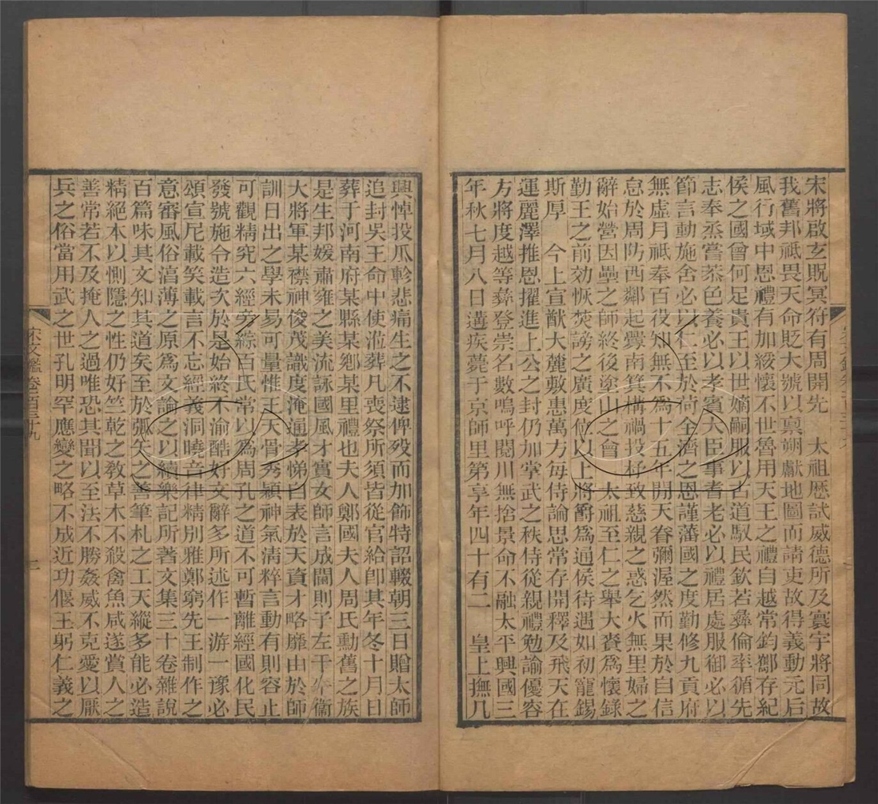 宋將啟玄貺冥符有周開先　太祖歷試威德所及寰宇將同故
我舊邦祗畏天命貶大號以稟朔獻地圖而請吏故得義動元后
風行域中恩禮有加綏懷不世魯用天王之禮自越常鈞酇存紀
侯之國曾何足貴王以世嫡嗣服以古道馭民欽若彝倫率循先
志奉烝嘗恭色養必以孝賓大臣事耆老必以禮居處服御必以
節言動施舍必以仁至於荷全濟之恩謹藩國之度勤修九貢府
無虛月祗奉百役知無不為十五年間天眷彌渥然而果於自信
怠於周防西鄰起釁南箕搆禍投杼致慈親之惑乞火無里婦之
辭始營因壘之師終後塗山之會　太祖至仁之舉大賚為懷錄
勤王之前効恢焚謗之廣度位以上將爵為通侯待遇如初寵錫
斯厚　今上宣猷大麓敷惠萬方每侍論思常存開釋及飛天在
運麗澤推恩擢進上公之封仍加掌武之秩侍從親禮勉諭優容
方將度越等彝登崇名數嗚呼閱川無捨景命不融太平興國三
年秋七月八日遘疾薨于京師里第享年四十有二　皇上撫几
興悼投瓜軫悲痛生之不逮俾歿而加飾特詔輟朝三日贈太師
追封吳王命中使涖葬凡喪祭所須皆從官給即其年冬十月日
葬于河南府某縣某鄉某里禮也夫人鄭國夫人周氏勳舊之族
是生邦媛肅雍之美流詠國風才實女師言成閫則子左千牛衞
大將軍某襟神俊茂識度淹通孝悌自表於天資才略靡由於師
訓日出之學未易可量惟王天骨秀穎神氣清粹言動有則容止
可觀精究六經旁綜百氏常以為周孔之道不可暫離經國化民
發號施令造次於是始終不渝酷好文辭多所述作一游一豫必
頌宣尼載笑載言不忘經義洞曉音律精別雅鄭窮先王制作之
意審風俗淳薄之原為文論之以續樂記所著文集三十卷雜說
百篇味其文知其道矣至於弧矢之善筆札之工天縱多能必造
精絕本以惻隱之性仍好竺乾之教草木不殺禽魚咸遂賞人之
善常若不及掩人之過唯恐其聞以至法不勝姦威不克愛以厭
兵之俗當用武之世孔明罕應變之略不成近功偃王躬仁義之
宋文鑑卷一百三十九
三